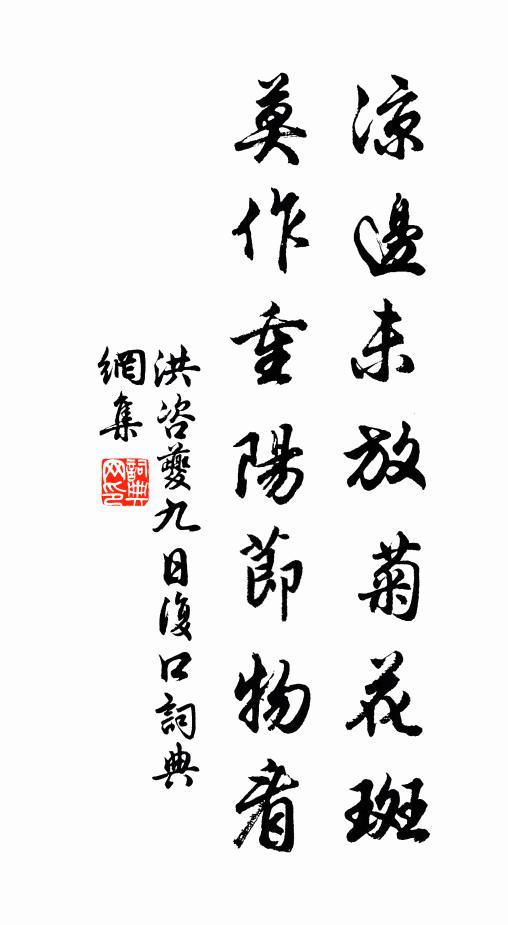 涼邊未放菊花斑
莫作重陽節物看
洪咨夔九日復口詞典
網集
詞典
网印